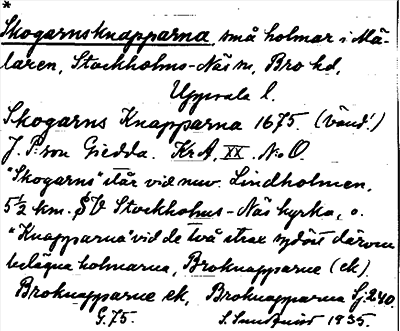 *
Skogarnsknapparna, små holmar i Mä-
laren, Stockholms-Näs sn, Bro hd,
Uppsala l.
Skogarns Knapparna 1675. (vänd!)
J. P:son Giedda. KrA, XX. N:o O.
"Skogarns" står vid nuv. Lindholmen,
5½ km. SV Stockholms-Näs kyrka, o.
"Knapparna" vid de två strax sydöst därom
belägna holmarna, Broknapparne (ek).
Broknapparne ek, Broknapparna Sj. 240.
G. 75. S. Sundquist 1935.